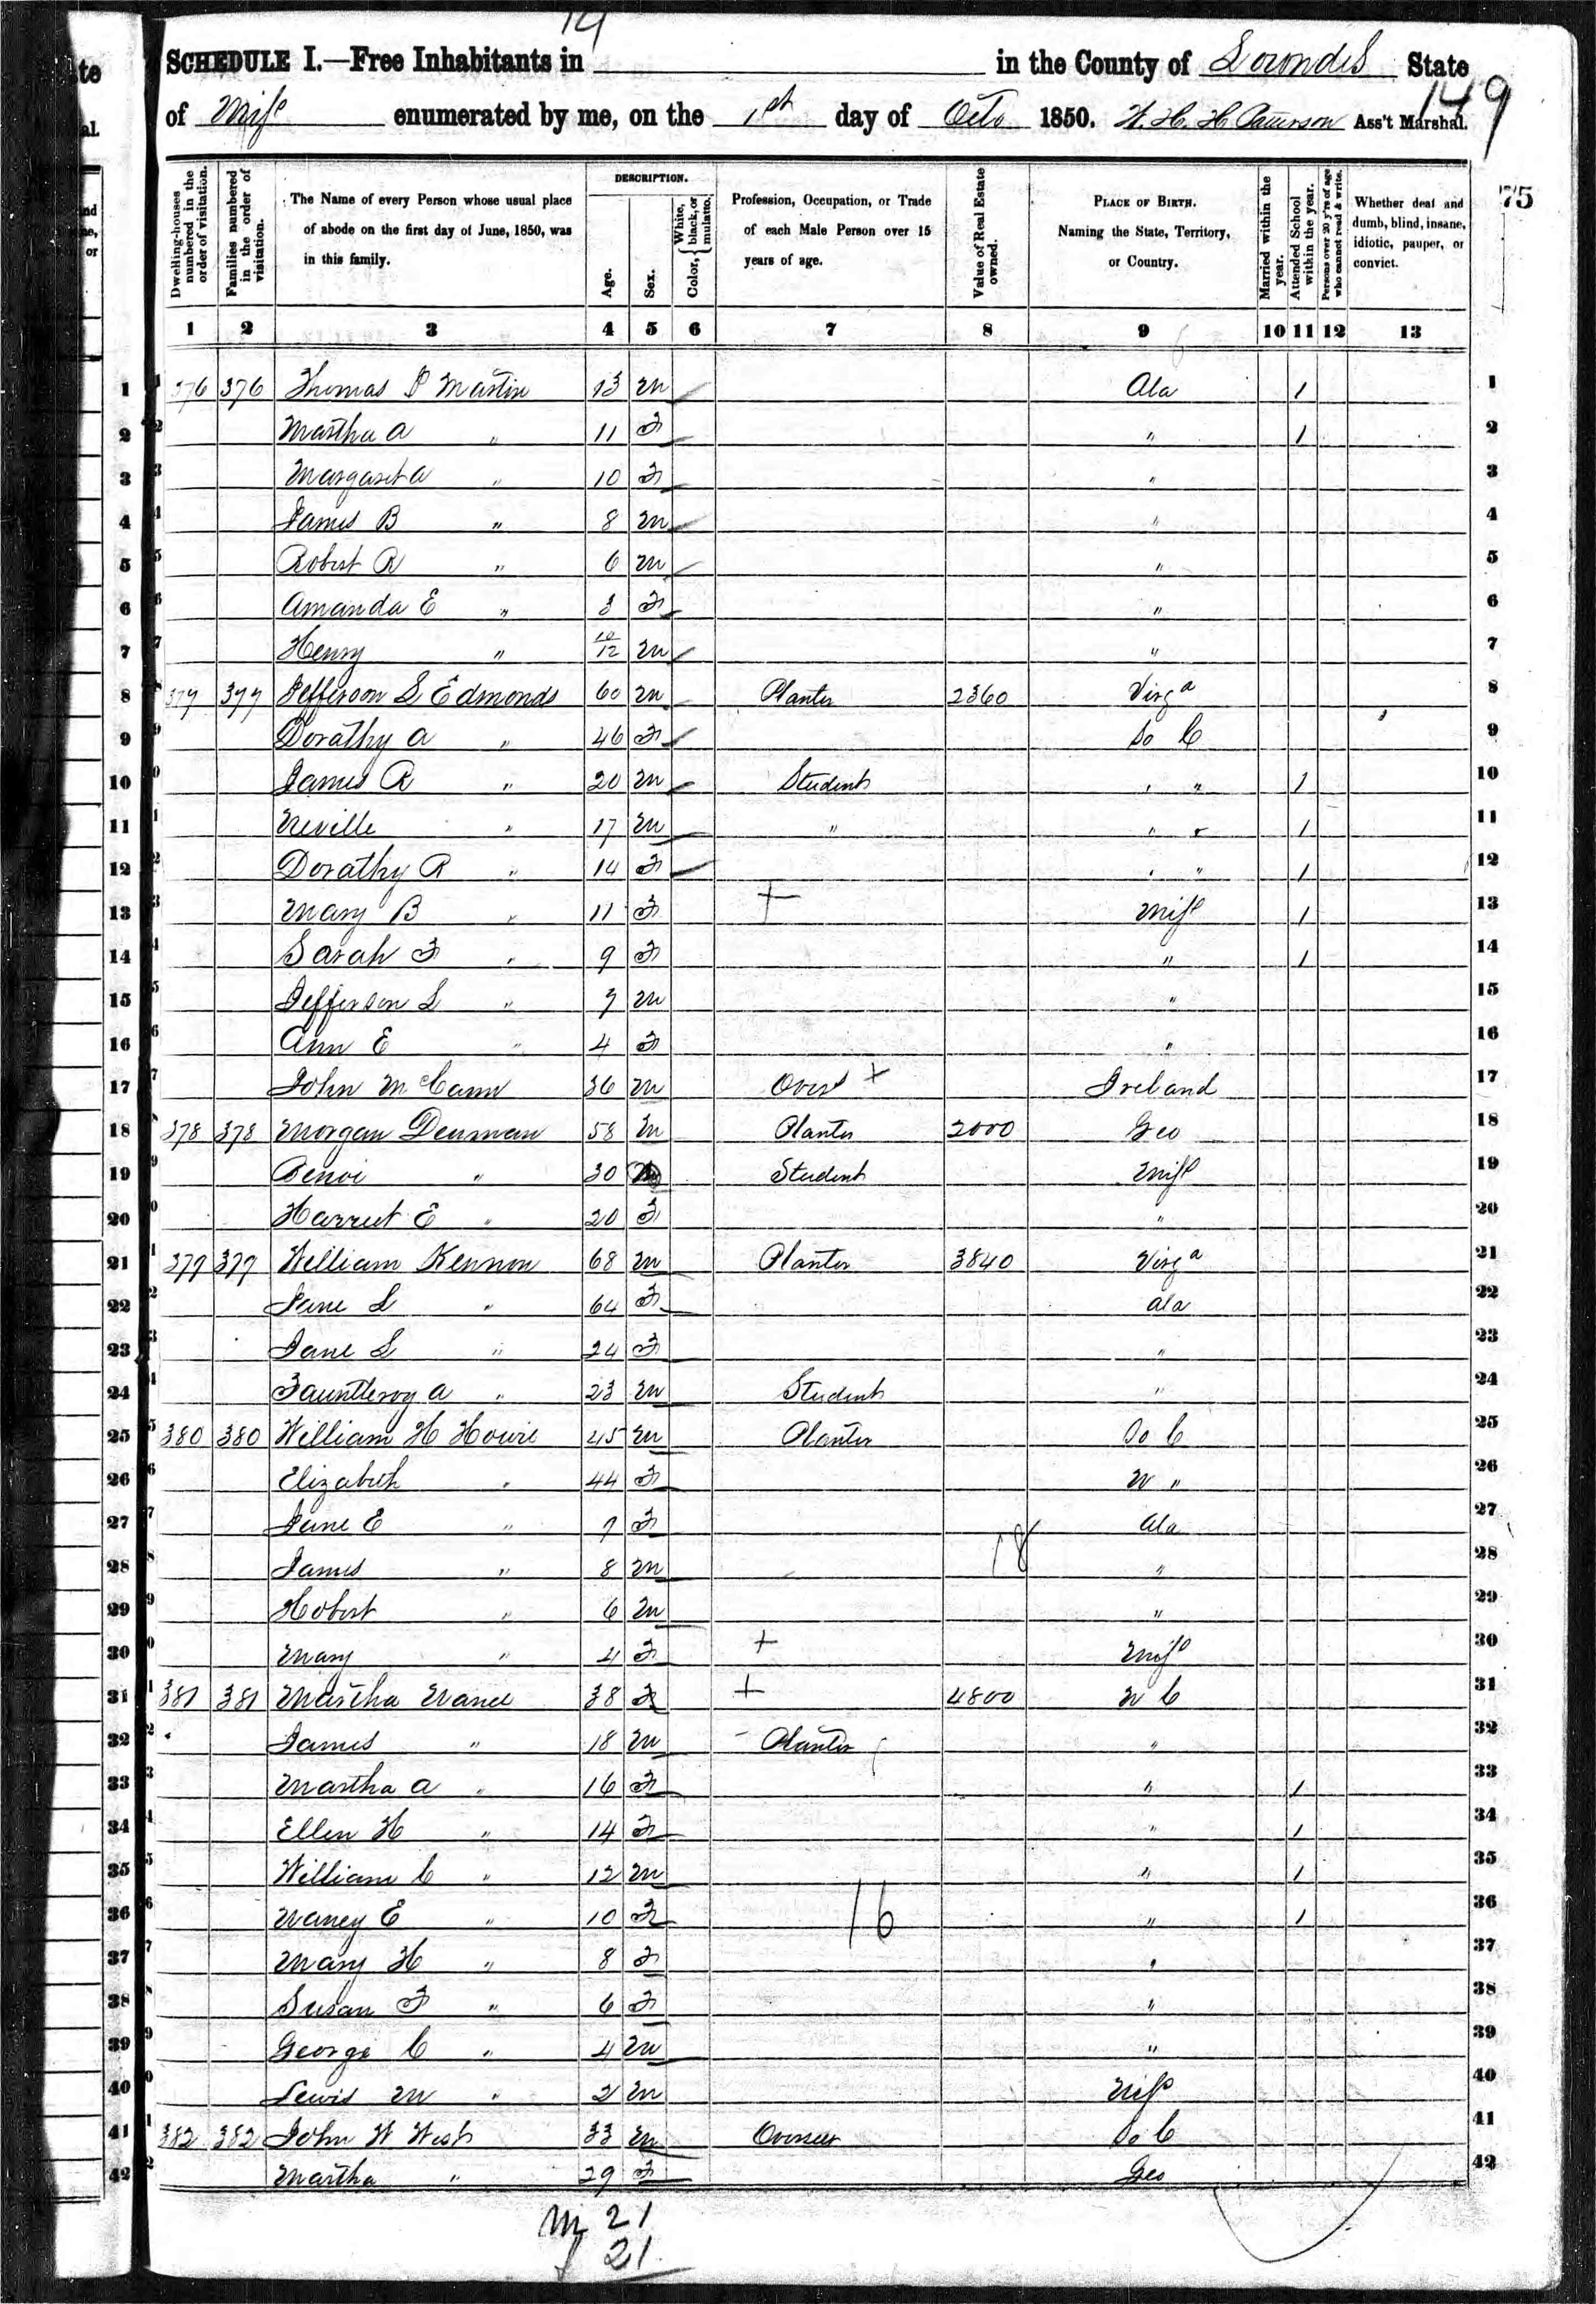 14
SCHEDULE I.—Free Inhabitants in in the County of Lowndes State
of Missp enumerated by me, on the 1st day of Octo 1850. W. H. H. Patterson Ass't Marshal.
149
75
Dwelling-houses numbered in the order of visitation.
Families numbered in the order of visitation.
The Name of every Person whose usual place of abode on the first day of June, 1850, was in this family.
DESCRIPTION.
Age.
Sex.
Color, { White, black, or mulatto.
Profession, Occupation, or Trade of each Male Person over 15 years of age.
Value of Real Estate owned.
PLACE OF BIRTH. Naming the State, Territory, or Country.
Married within the year.
Attended School within the year.
Persons over 20 y'rs of age who cannot read & write.
Whether deaf and dumb, blind, insane, idiotic, pauper, or convict.
1 2 3 4 5 6 7 8 9 10 11 12 13
1 376 376 Thomas P Martin 13 M Ala 1 1
2 Martha A " 11 F " 1 2
3 Margaret A " 10 F " 3
4 James B " 8 M " 4
5 Robert R " 6 M " 5
6 Amanda E " 3 F " 6
7 Henry " 10/12 M " 7
8 377 377 Jefferson L Edmonds 60 M Planter 2360 Virga 8
9 Dorathy A " 46 F So C 9
10 James R " 20 M Student " " 1 10
11 Neville " 17 M " " " 1 11
12 Dorathy R " 14 F " " 1 12
13 Mary B " 11 F + Missp 1 13
14 Sarah F " 9 F " 1 14
15 Jefferson L " 7 M " 15
16 Ann E " 4 F " 16
17 John McCann 36 M Overs + Ireland 17
18 378 378 Morgan Denman 58 M Planter 2000 Geo 18
19 " 30 M Student Missp 19
20 Harriet E " 20 F " 20
21 379 379 William Kennon 68 M Planter 3840 Virga 21
22 Jane L " 64 F Ala 22
23 Jane L " 24 F " 23
24 Fauntleroy A " 23 M Student " 24
25 380 380 William H Howie 45 M Planter So C 25
26 Elizabeth " 44 F N " 26
27 Jane E " 9 F Ala 27
28 James " 8 M 18 " 28
29 Hobert " 6 M " 29
30 Mary " 4 F + Missp 30
31 381 381 Martha Nance 38 F + 4800 N C 31
32 James " 18 M Planter " 32
33 Martha A " 16 F " 1 33
34 Ellen H " 14 F " 1 34
35 William C " 12 M " 1 35
36 Nancy E " 10 F 16 " 1 36
37 Mary H " 8 F " 37
38 Susan F " 6 F " 38
39 George C " 4 M " 39
40 Lewis M " 2 M Missp 40
41 382 382 John W West 33 M Overseer So C 41
42 Martha " 29 F Geo 42
M 21
f 21